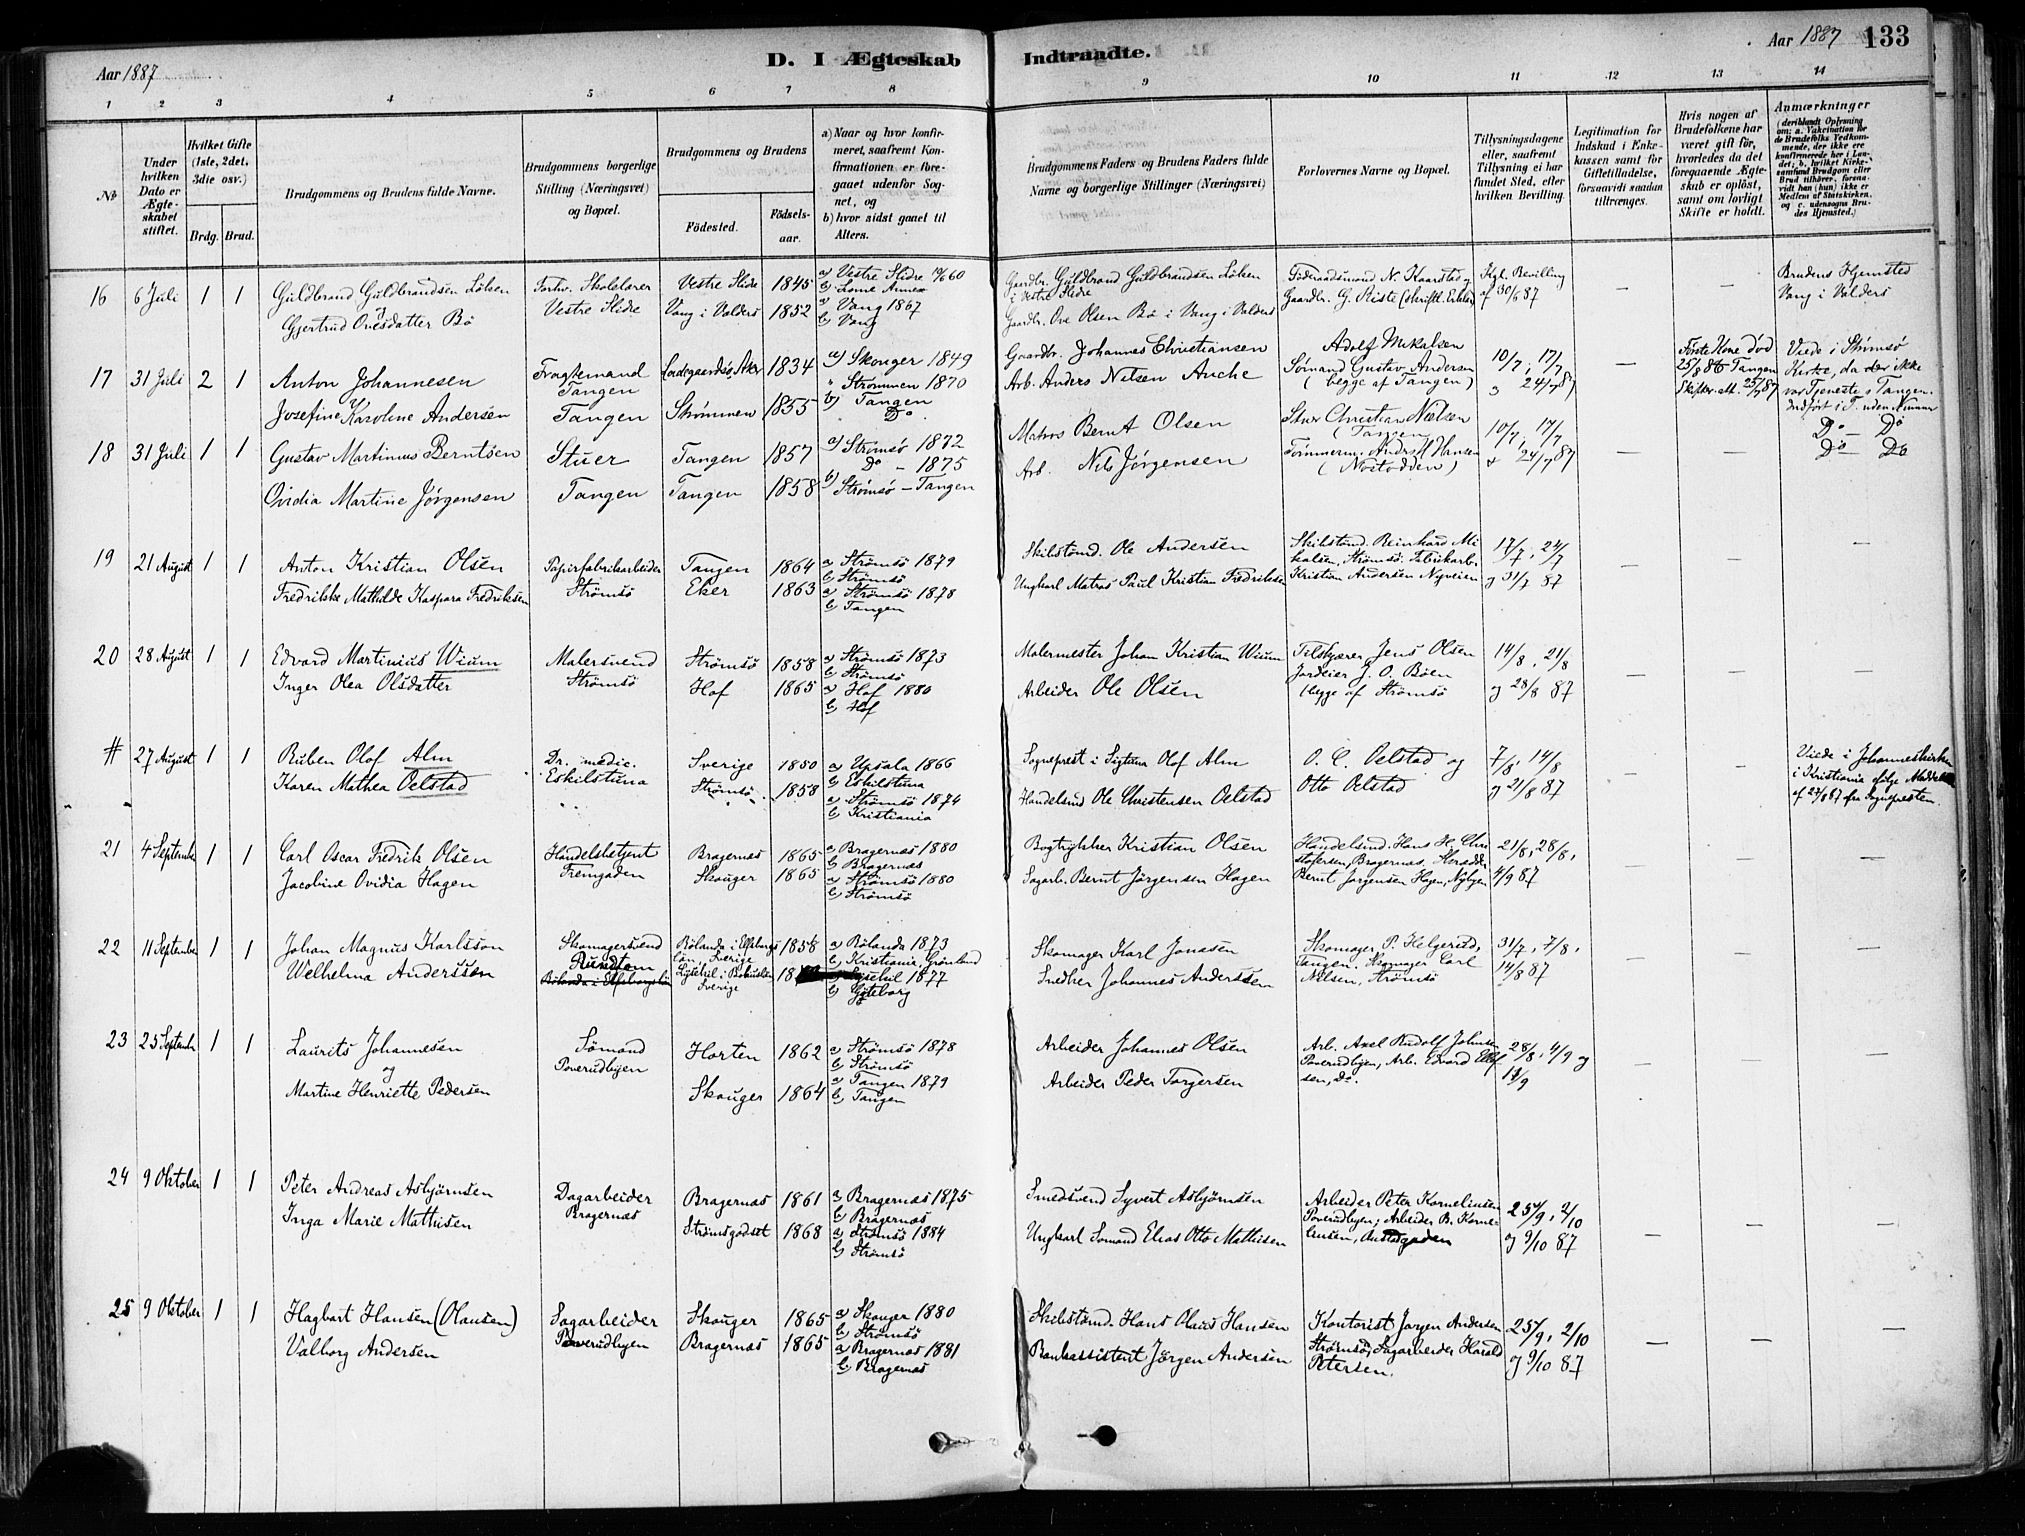 Aar 1887
D. I Ægteskab Indtraadte.
Aar 1887 133
1 2 3 4 5 6 7 8 9 10 11 12 13 14
No
Under hvilken Dato er Ægteskabet stiftet.
Hvilket Gifte (1ste, 2det, 3die osv.)
Brdg. Brud.
Brudgommens og Brudens fulde Navne.
Brudgommens borgerlige Stilling (Næringsvei) og Bopæl.
Brudgommens og Brudens
Fødested. Fødselsaar.
a) Naar og hvor konfirmeret, saafremt Konfirmationen er foregaaet udenfor Sognet, og
b) hvor sidst gaaet til Alters.
Brudgommens Faders og Brudens Faders fulde Navne og borgerlige Stillinger (Næringsvei)
Forlovernes Navne og Bopæl.
Tillysningsdagene eller, saafremt Tillysning ei har fundet Sted, efter hvilken Bevilling.
Legitimation for Indskud i Enkekassen samt for Giftetilladelse, forsaavidt saadan tiltrænges.
Hvis nogen af Brudefolkene har været gift før, hvorledes da det foregaaende Ægteskab er opløst, samt om lovligt Skifte er holdt.
Anmærkninger (deriblandt Oplysning om: a. Vakcination for de Brudefolks Vedkommende, der ikke ere konfirmerede her i Landet; b. hvilket Kirkesamfund Brudgom eller Brud tilhører, forsaavidt han (hun) ikke er Medlem af Statskirken, og c. udensogns Brudes Hjemsted.)
16 6 Juli 1 1 Guldbrand Guldbrandsen Löken
Gjertrud Ovesdatter Bö
Forhv. Skolelærer
Vestre Slidre
Vestre Slidre 1845
Vang i Valders 1852
a) Vestre Slidre 60
b) Lomé Annex
a) Vang 1867
b) Vang
Gaardbr. Guldbrand Guldbrandsen Løken
i Vestre Slidre
Gaardbr. Ove Olsen Bö i Vang i Valders
Föderaadsmand N. Kaarstad og
Gaardbr. G. Riste
Kgl. Bevilling
af 30/6 87
— —
Brudens Hjemsted
Vang i Valders
17 31 Juli 2 1 Anton Johannesen
Josefine Karoline Andersen
Fragtemand
Tangen
Tangen
1834
Strömmen 1855
a) Skouger 1849
" Strömmen 1870
b) Tangen
Do
Gaardbr. Johannes Christiansen
Arb. Anders Nilsen Anche
Adolf Mikalsen
Sömand Gustav Andersen
(begge af Tangen)
10/7, 17/7
og 24/7 87
—
Første Kone död
25/8 86 Tangen
Skifte att. 25/7 87
Viede i Strömsö
Kirke, da der ikke
var Tjeneste i Tangen.
Indfört i T. uden Numer
18 31 Juli 1 1 Gustav Martinius Berntsen
Ovidia Martine Jörgensen
Stuer
Tangen
Tangen 1857
Tangen 1858
a) Strömsö 1872
Do – 1875
b) Strömsö – Tangen
Matros Bernt Olsen
Arb. Nils Jörgensen
Stuer Christian Nielsen
(Tangen)
Tømmerm. Andrs. Hansen
10/7, 17/7
& 24/7 87
— —
Do – Do
Do Do
19 21 August 1 1 Anton Kristian Olsen
Fredrikke Mathilde Kaspara Fredriksen
Papirfabrikarbeider
Strömsö
Tangen 1864
Eker 1863
a) Strömsö 1879
b) Strömsö
a) Strömsö 1878
b) Tangen
Skibstömd. Ole Andersen
Ungkarl Matros Paul Kristian Fredriksen
Skibstömd. Reinhard Mi
kalsen, Strömsö. Fabrikarb.
Kristian Andersen Nyveien
17/7, 24/7
og 31/7 87
— — —
20 28 August 1 1 Edvard Martinius Wium
Inger Olea Olsdatter
Malersvend
Strömsö
Strömsö 1858
Hof 1865
a) Strömsö 1873
b) Strömsö
a) Hof 1880
b) Hof
Malermester Johan Kristian Wium
Arbeider Ole Olsen
Jens Olsen
Jordeier J. O. Böen
begge af Strömsö
14/8, 21/8
og 28/8 87
— — —
# 27 August 1 1 Ruben Olof Alm
Karen Mathea Oelstad
Dr. medic.
Eskilstuna
Sverige 1850
Strömsö 1858
a) Upsala 1866
b) Eskilstuna
a) Strömsö 1874
b) Kristiania
Sogneprest i Sigtuna Olof Alm
Handelsmd Ole Christensen Oelstad
O. C. Oelstad og
Otto Oelstad
7/8, 14/8
og 21/8 87
— —
Viede i Johanneskirken
i Kristiania ifölge Meddel
af 27/8 87 fra Sognepresten.
21 4 September 1 1 Carl Oscar Fredrik Olsen
Jacobine Ovidia Hagen
Handelsbetjent
Tremgaden
Bragernæs 1865
Skouger 1865
a) Bragernæs 1880
b) Bragernæs
a) Strömsö 1880
b) Strömsö
Bogtrykker Kristian Olsen
Sagarb. Bernt Jörgensen Hagen
Handelsmd. Hans H. Chri
stofersen, Bragernæs.
Bernt Jörgensen Hagen, Nybyen
21/8, 28/8,
4/9 87
— — —
22 11 September 1 1 Johan Magnus Karlsson
Welhelma Anderssen
Skomagersvend
Rundtom
Bölanda i Elfsborgs 1858
län, Sverige
Lysekil i Bohuslän
Sverige
a) Bölanda 1873
b) Kristiania, Grönland
a) Lysekil 1877
b) Göteborg
Skomager Karl Jonasen
Snedker Johannes Anderssen
Skomager P. Helgerud,
Tangen. Skomager Carl
Nilsen, Strömsö
31/7, 7/8,
14/8 87
— — —
23 25 September 1 1 Laurits Johannesen
og
Martine Henriette Pedersen
Sömand
Poverudbyen
Horten 1862
Skouger 1864
a) Strömsö 1878
b) Strömsö
a) Tangen 1879
b) Tangen
Arbeider Johannes Olsen
Arbeider Peder Torgersen
Arb. Axel Rudolf Johnsen
Poverudbyen, Arb. Edvard Ellef
sen, Do.
28/8, 4/9 og
11/9
— — —
24 9 Oktober 1 1 Peter Andreas Asbjörnsen
Inga Marie Mathisen
Dagarbeider
Bragernæs
Bragernæs 1861
Strömsgodset 1868
a) Bragernæs 1875
b) Bragernæs
a) Strömsö 1884
b) Strömsö
Smedsvend Syvert Asbjörnsen
Ungkarl Sömand Elias Otto Mathisen
Arbeider Peter Korneliusen
Poverudbyen; Arbeider B. Korne-
liusen,
25/9, 2/10
og 9/10 87
— — —
25 9 Oktober 1 1 Hagbart Hansen (Olausen)
Valborg Andersen
Sagarbeider
Poverudbyen
Skouger 1865
Bragernæs 1865
a) Skouger 1880
b) Strömsö
a) Bragernæs 1881
b) Bragernæs
Skibstömd. Hans Olaus Hansen
Bankassistent Jörgen Andersen
Kontorist Jörgen Andersen
Strömsö, Sagarbeider Harald
Petersen.
25/9, 2/10
og 9/10 87
— — —